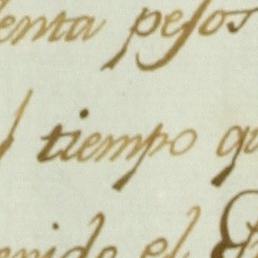 enta pesos
tiempo qu
enido el